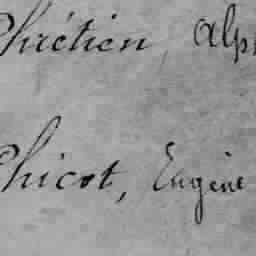 Chrétien, Alp
Chicot, Eugène